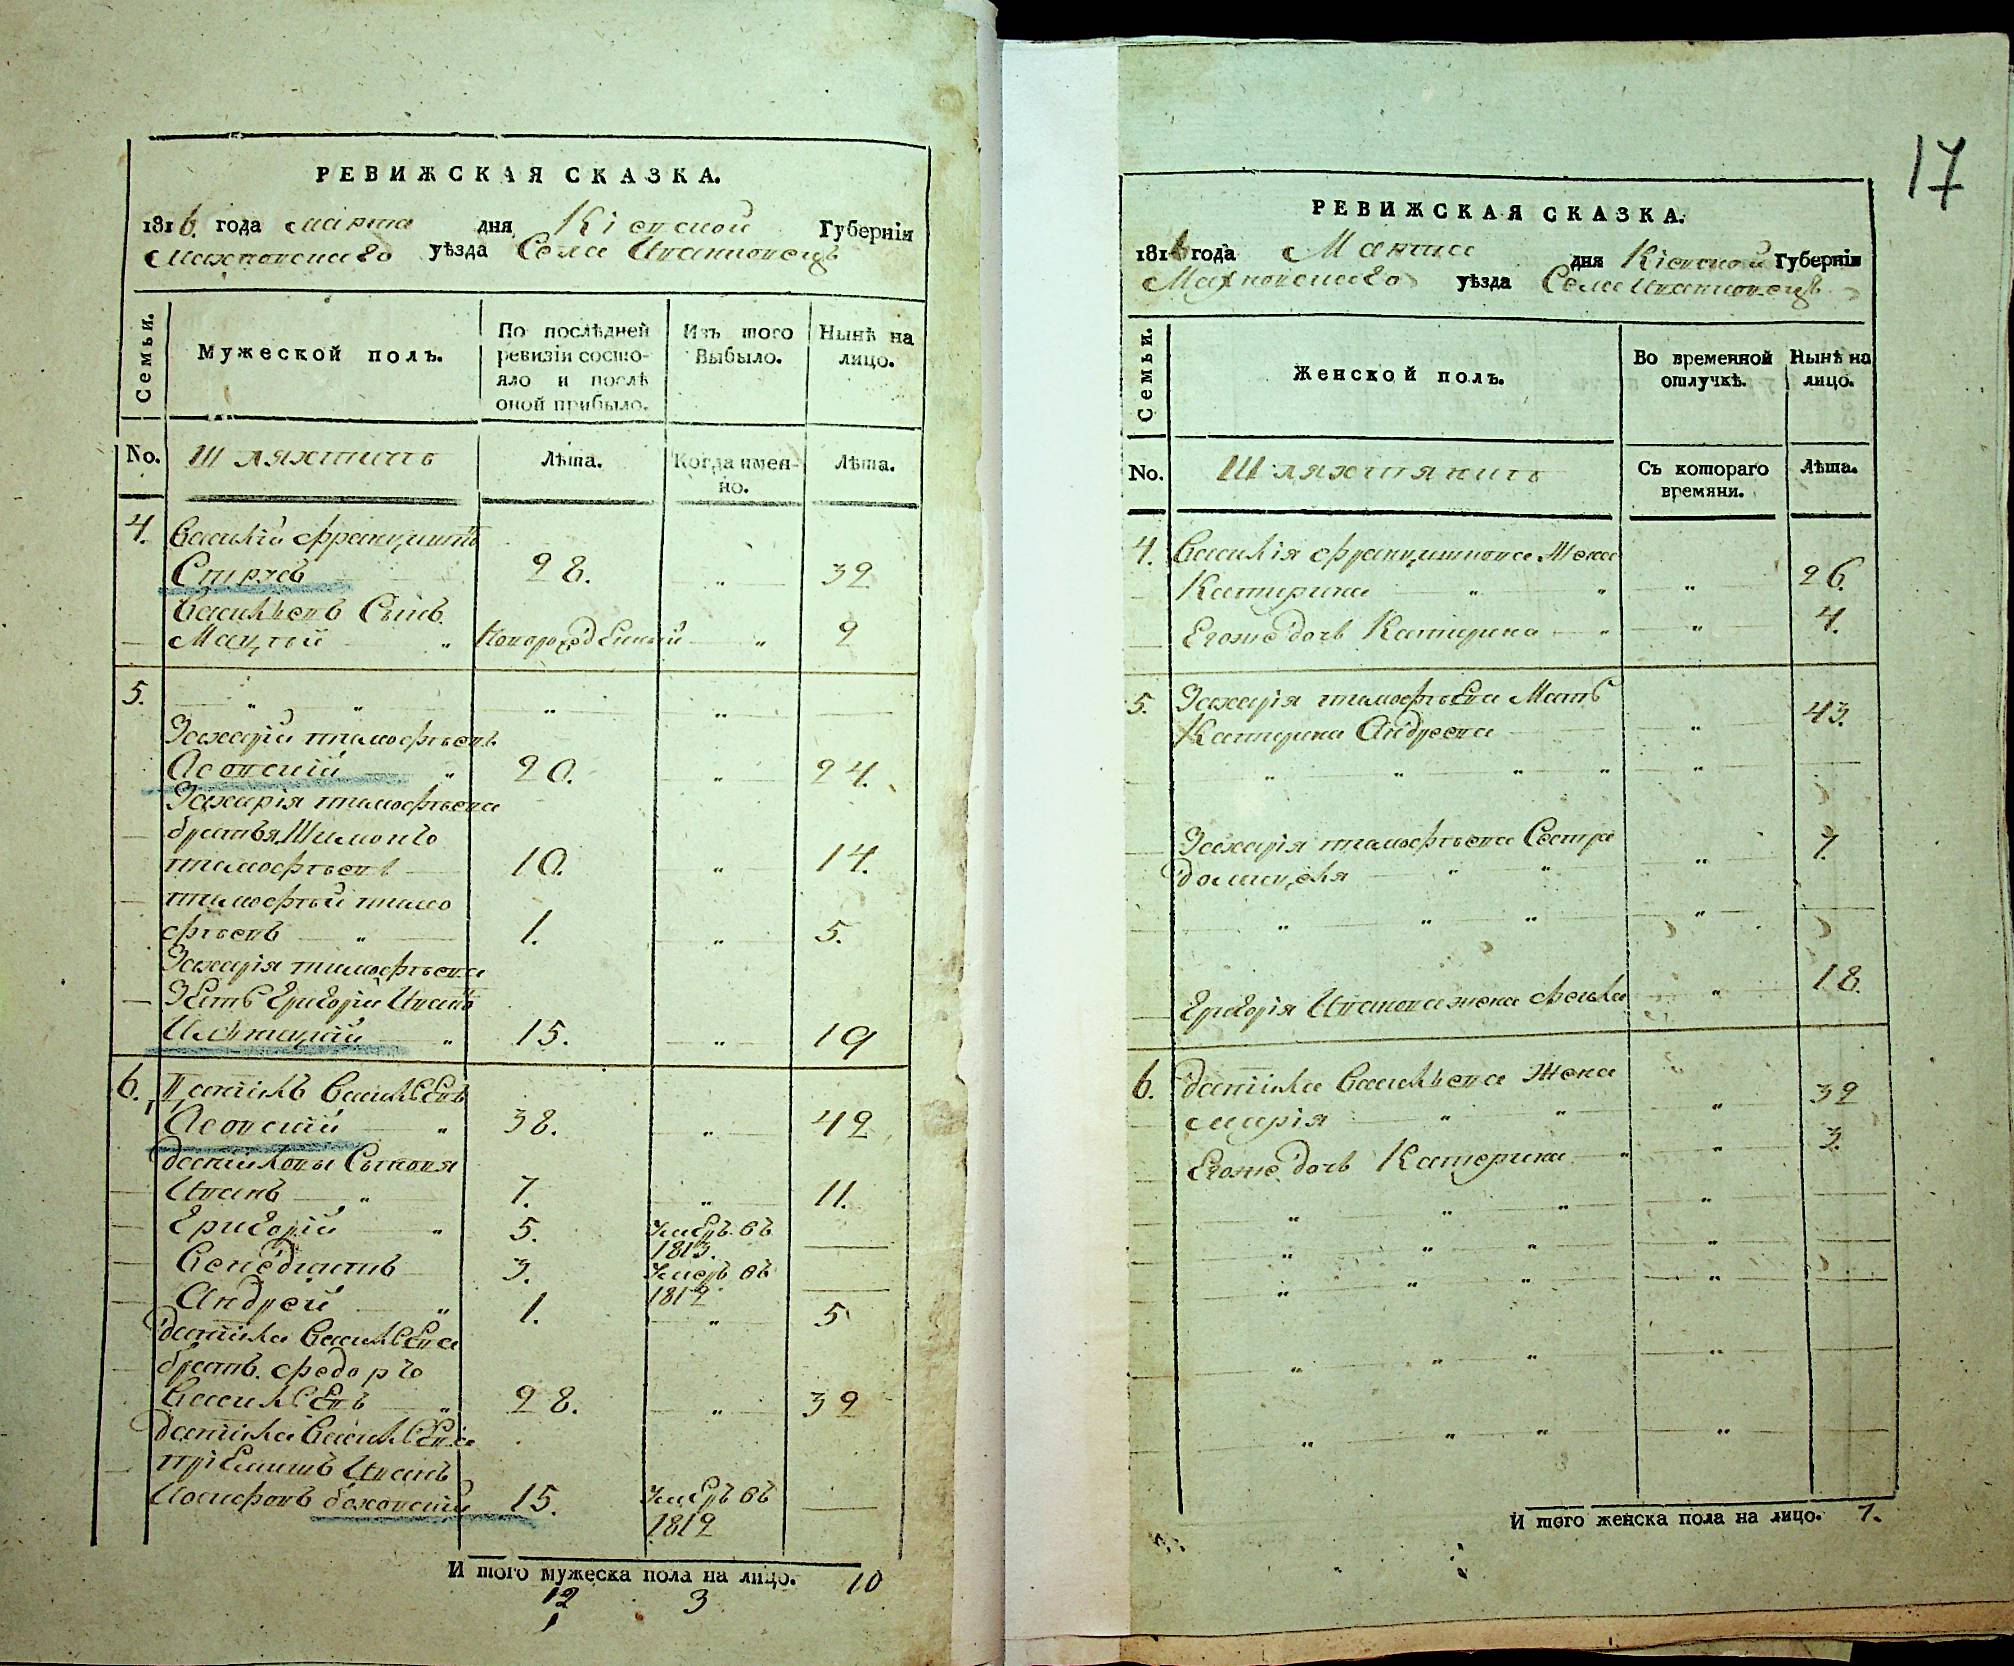 РЕВИЖСКАЯ СКАЗКА.
1816. года марта дня Кіевской Губерніи
Махновскаго уѣзда Села Иванковецъ
Семьи.
Мужеской полъ.
По послѣдней ревизіи состояло и послѣ оной прибыло.
Изъ того Выбыло.
Нынѣ на лицо.
No.
Шляхтичъ
Лѣта.
Когда именно.
Лѣта.
4. Василій францишковъ
28. „ 32
Васильевъ Сынъ
Новорожденный „ 2
5. „ „ „ „
Захарій тимофѣевъ
20. „ 24.
Захарія тимофѣева
братья
тимофѣевъ 10. „ 14.
тимофѣй тимо
фѣевъ „ 1. „ 5.
Захарія тимофѣева
Зять Григорій
„ 15. „ 19
6. Данилъ Васильевъ
„ 38. „ 42
Даниловы Сыновя
Иванъ „ 7. „ 11.
Григорій „ 5. умеръ въ 1813.
3. умеръ въ 1812
Андрей „ 1. „ 5
Данила Васильева
братъ федоръ
Васильевъ „ 28. „ 32
Данила Васильева
Иванъ
15. умеръ въ 1812
И того мужеска пола на лицо. 10
12 3
1
17
РЕВИЖСКАЯ СКАЗКА.
1816 года Марта дня Кіевской Губерніи
Махновскаго уѣзда Села Иванковецъ
Семьи.
Женской полъ.
Во временной отлучкѣ.
Нынѣ на лицо.
No.
Съ котораго времяни.
Лѣта.
4. Василія францишкова Жена
Катерина „ „ „ 26.
Егоже дочь Катерина „ „ 4.
5. Захарія тимофѣева Мать
Катерина Андреева „ 43.
„ „ „ „ „
Захарія тимофѣева Сестра
„ „ „ 7.
„ „ „ „
Григорія жена „ 18.
6. Данила Васильева Жена
марія „ „ „ 32
Егоже дочь Катерина „ „ 3.
„ „ „ „
„ „ „ „
„ „ „ „
„ „ „ „
„ „ „ „
И того женска пола на лицо. 7.